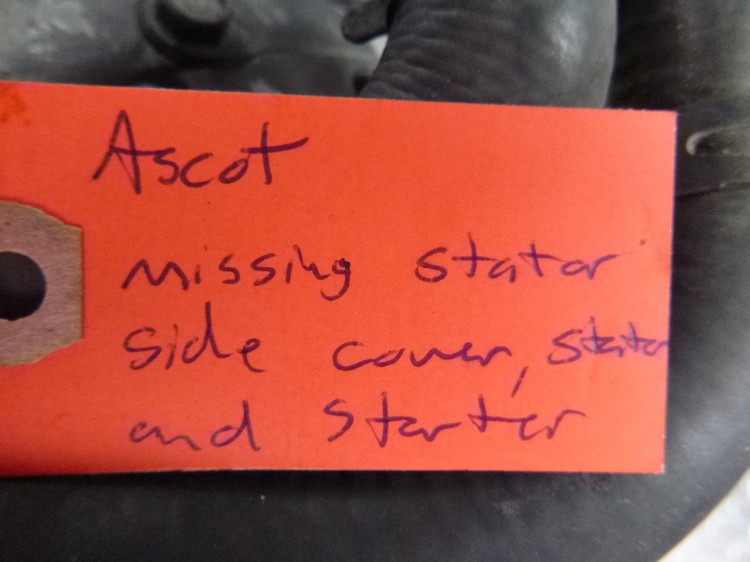 Ascot
missing stator
side cover, stator
and starter